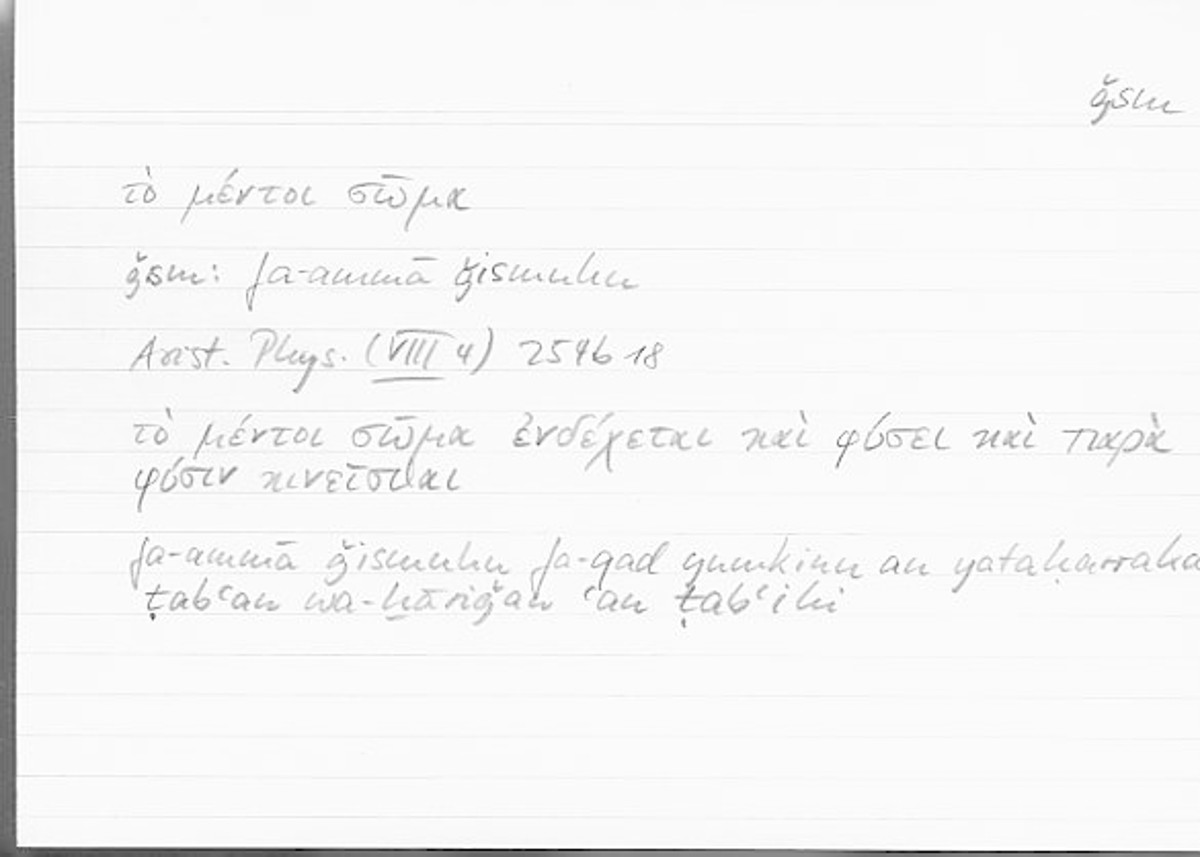 ǧsm
τὸ μέντοι σῶμα
ǧsm: fa-ammā ǧismuhu
Arist. Phys. (VIII 4) 254b 18
τὸ μέντοι σῶμα ἐνδέχεται καὶ φύσει καὶ παρὰ
φύσιν κινεῖσθαι
fa-ammā ǧismuhu fa-qad yumkinu an yataḥarraka
ṭabʿan wa-ḫāriǧan ʿan ṭabʿihi